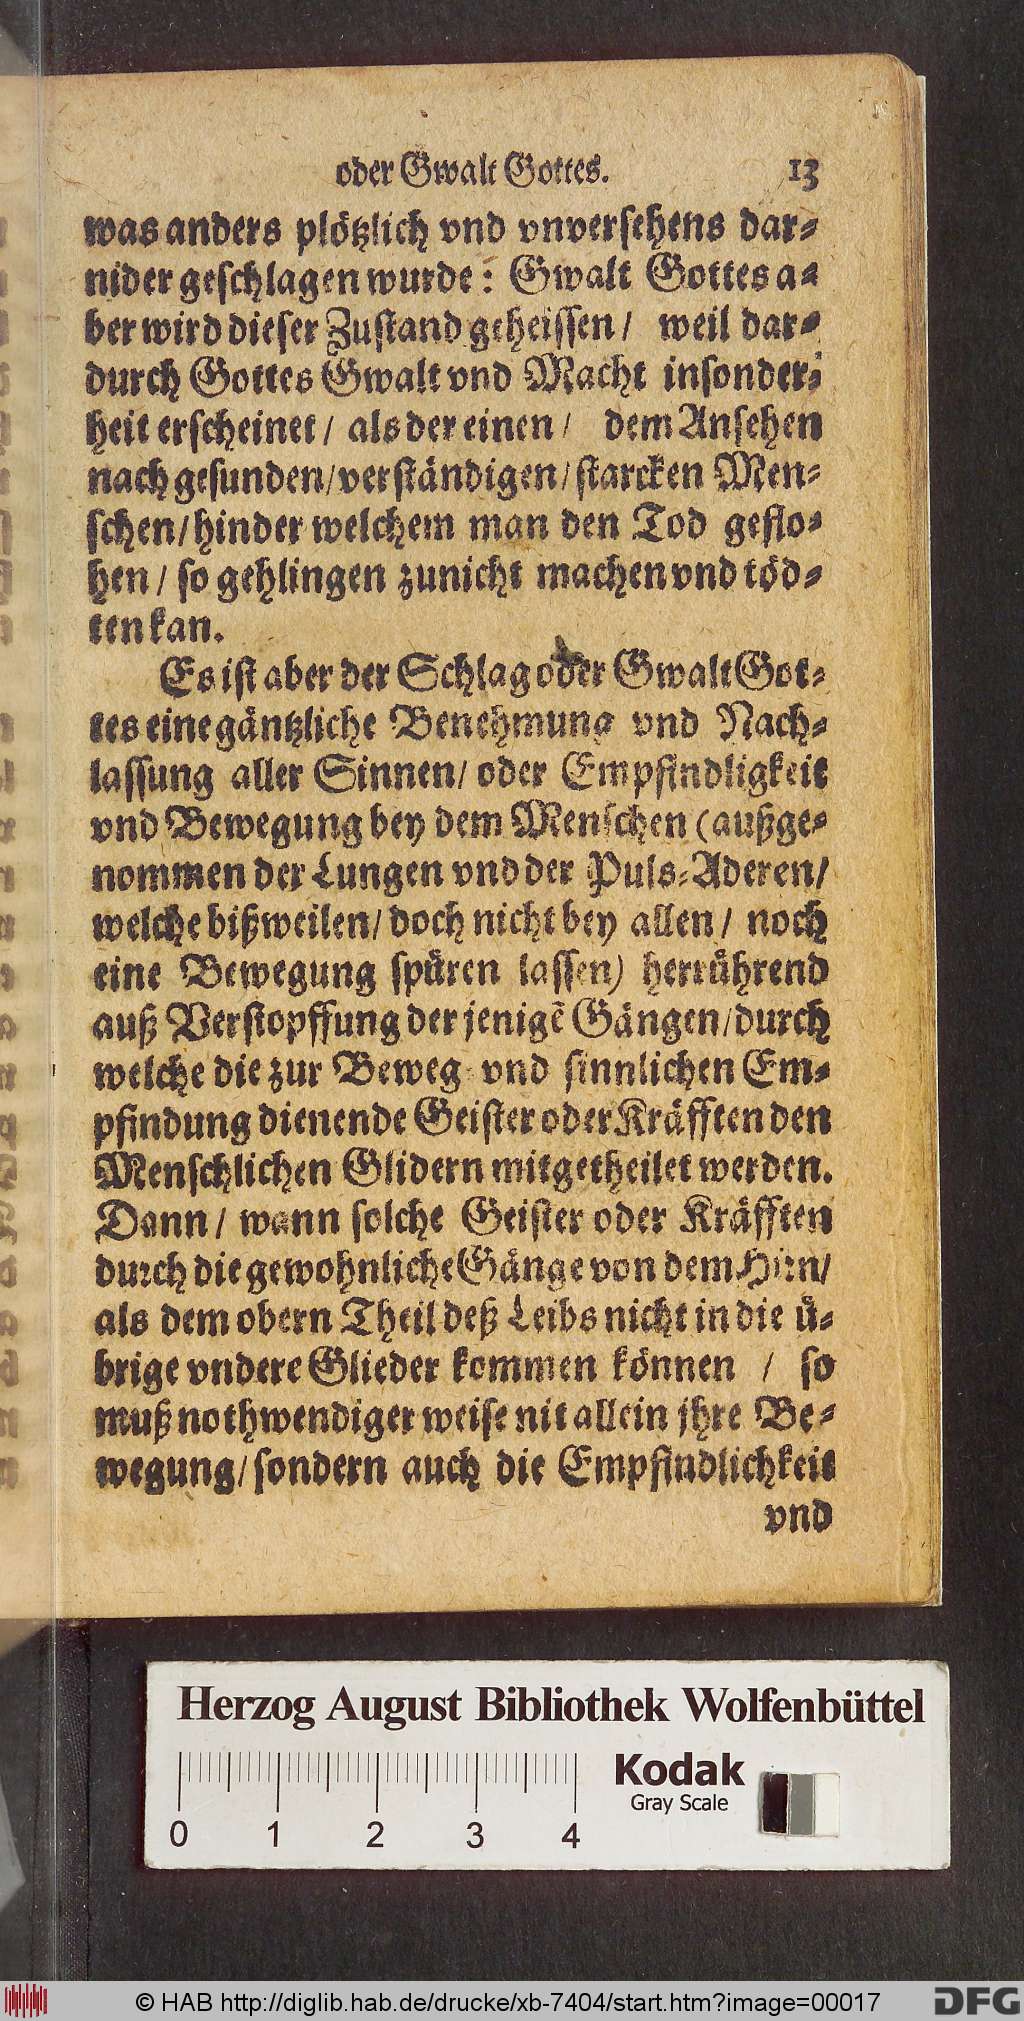 oder Gwalt Gottes. 13
was anders plötzlich vnd vnversehens dar-
nider geschlagen wurde: Gwalt Gottes a-
ber wird dieser Zustand geheissen/ weil dar-
durch Gottes Gwalt vnd Macht insonder-
heit erscheinet/ als der einen/ dem Ansehen
nach gesunden/verständigen/starcken Men-
schen/hinder welchem man den Tod geflo-
hen/ so gehlingen zunicht machen vnd töd-
ten kan.
Es ist aber der Schlag oder Gwalt Got-
tes eine gäntzliche Benehmung vnd Nach-
lassung aller Sinnen/ oder Empfindligkeit
vnd Bewegung bey dem Menschen (außge-
nommen der Lungen vnd der Puls-Aderen/
welche bißweilen/ doch nicht bey allen/ noch
eine Bewegung spüren lassen) herrührend
auß Verstopffung der jenigē Gängen/durch
welche die zur Beweg- vnd sinnlichen Em-
pfindung dienende Geister oder Kräfften den
Menschlichen Glidern mitgetheilet werden.
Dann/ wann solche Geister oder Kräfften
durch die gewohnliche Gänge von dem Hirn/
als dem obern Theil deß Leibs nicht in die ü-
brige vndere Glieder kommen können / so
muß nothwendiger weise nit allein jhre Be-
wegung/sondern auch die Empfindlichkeit
vnd
Herzog August Bibliothek Wolfenbüttel
Kodak
Gray Scale
0 1 2 3 4
© HAB http://diglib.hab.de/drucke/xb-7404/start.htm?image=00017
DFG